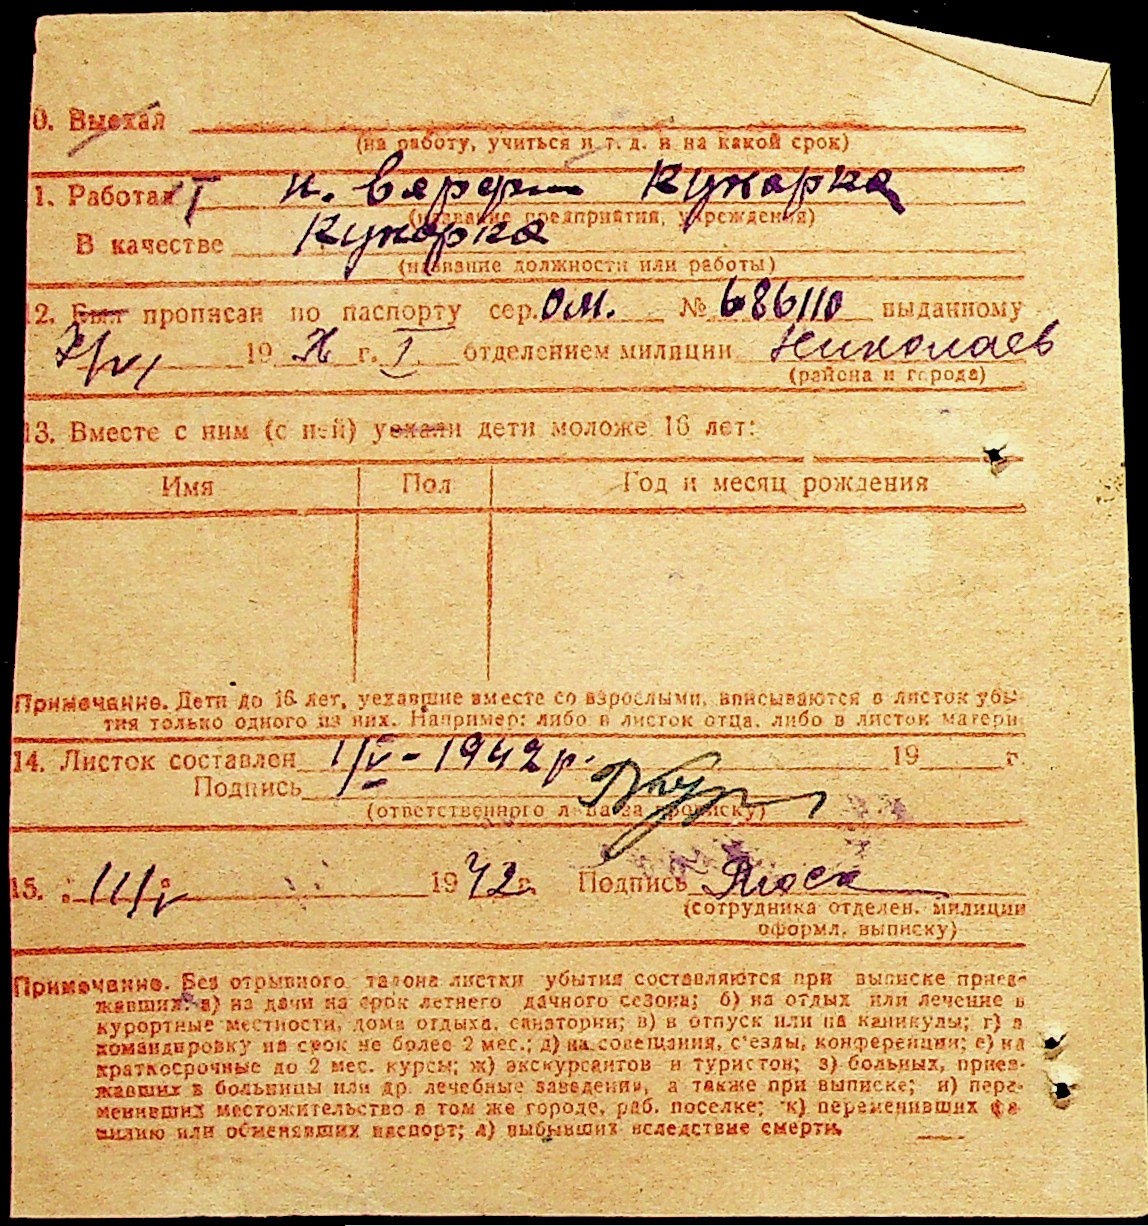 0. Выехал
(на работу, учиться и т. д. и на какой срок)
1. Работает н. верфи Кухарка
(название предприятия, учреждения)
В качестве Кухарка
(название должности или работы)
12. Был прописан по паспорту сер. ОМ. № 686110 выданному
19 г. I. отделением милиции Николаев
(района и города)
13. Вместе с ним (с ней) уехали дети моложе 16 лет:
Имя Пол Год и месяц рождения
Примечание. Дети до 16 лет, уехавшие вместе со взрослыми, вписываются в листок убы-
тия только одного из них. Например: либо в листок отца, либо в листок матери.
14. Листок составлен 1/V - 1942 р. 19 г.
Подпись
(ответственного л-ца за прописку)
15. 19 42 г. Подпись
(сотрудника отделен. милиции
оформл. выписку)
Примечание. Без отрывного талона листки убытия составляются при выписке приез-
жавших: а) на дачи на срок летнего дачного сезона; б) на отдых или лечение в
курортные местности, дома отдыха, санатории; в) в отпуск или на каникулы; г) в
командировку на срок не более 2 мес.; д) на совещания, с'езды, конференции; е) на
краткосрочные до 2 мес. курсы; ж) экскурсантов и туристов; з) больных, приез-
жавших в больницы или др. лечебные заведения, а также при выписке; и) пере-
менивших местожительство в том же городе, раб. поселке; к) переменивших фа-
милию или обменявших паспорт; л) выбывших вследствие смерти.